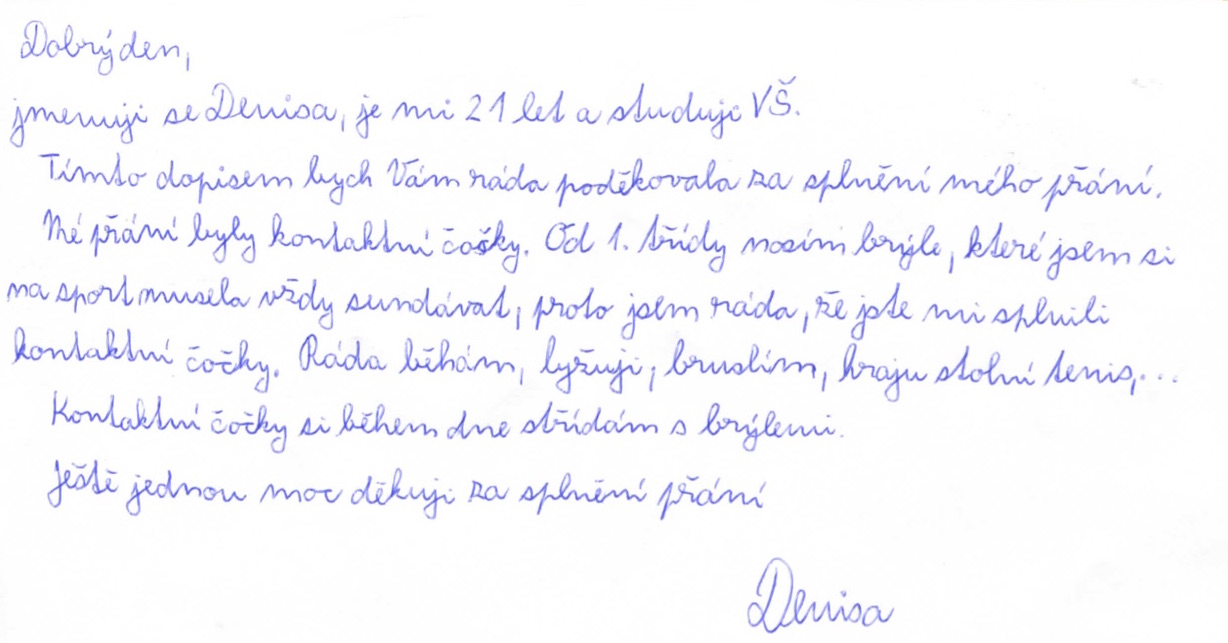 Dobrý den,
jmenuji se Denisa, je mi 21 let a studuji VŠ.
Tímto dopisem bych Vám ráda poděkovala za splnění mého přání.
Mé přání byly kontaktní čočky. Od 1. třídy nosím brýle, které jsem si
na sport musela vždy sundávat, proto jsem ráda, že jste mi splnili
kontaktní čočky. Ráda běhám, lyžuji, bruslím, hraju stolní tenis,...
Kontaktní čočky si během dne střídám s brýlemi.
Ještě jednou moc děkuji za splnění přání
Denisa